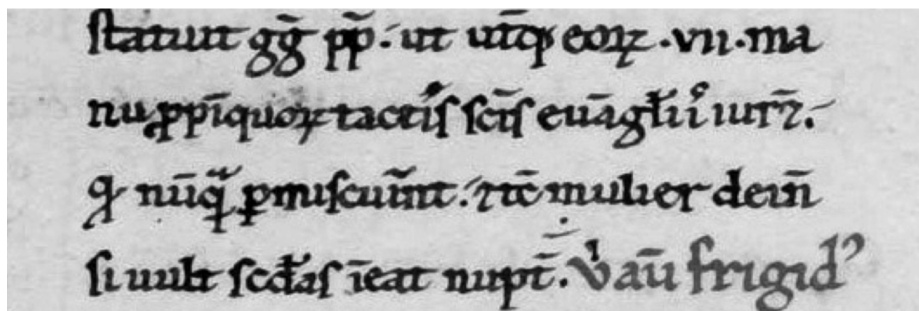 statuit gg̃ pp̃. ut utq̃ eoꝝ .vii. ma
nu ꝓpĩquoꝝ tactis sc̃is euãgliis iur̃.
nũq̃ ꝑmiscuer̃nt. ⁊ tc̃ mulier dein̄
si uult sc̃das ĩeat nupt̃. aũ frigid᾽